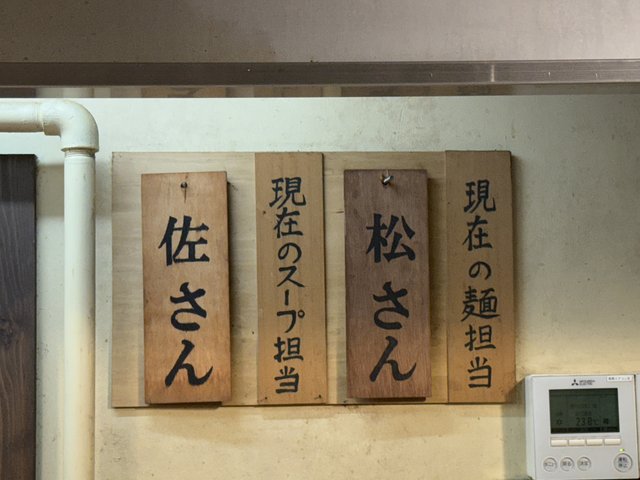 現在の麺担当
松さん
現在のスープ担当
佐さん
MITSUBISHI ELECTRIC
23.8℃